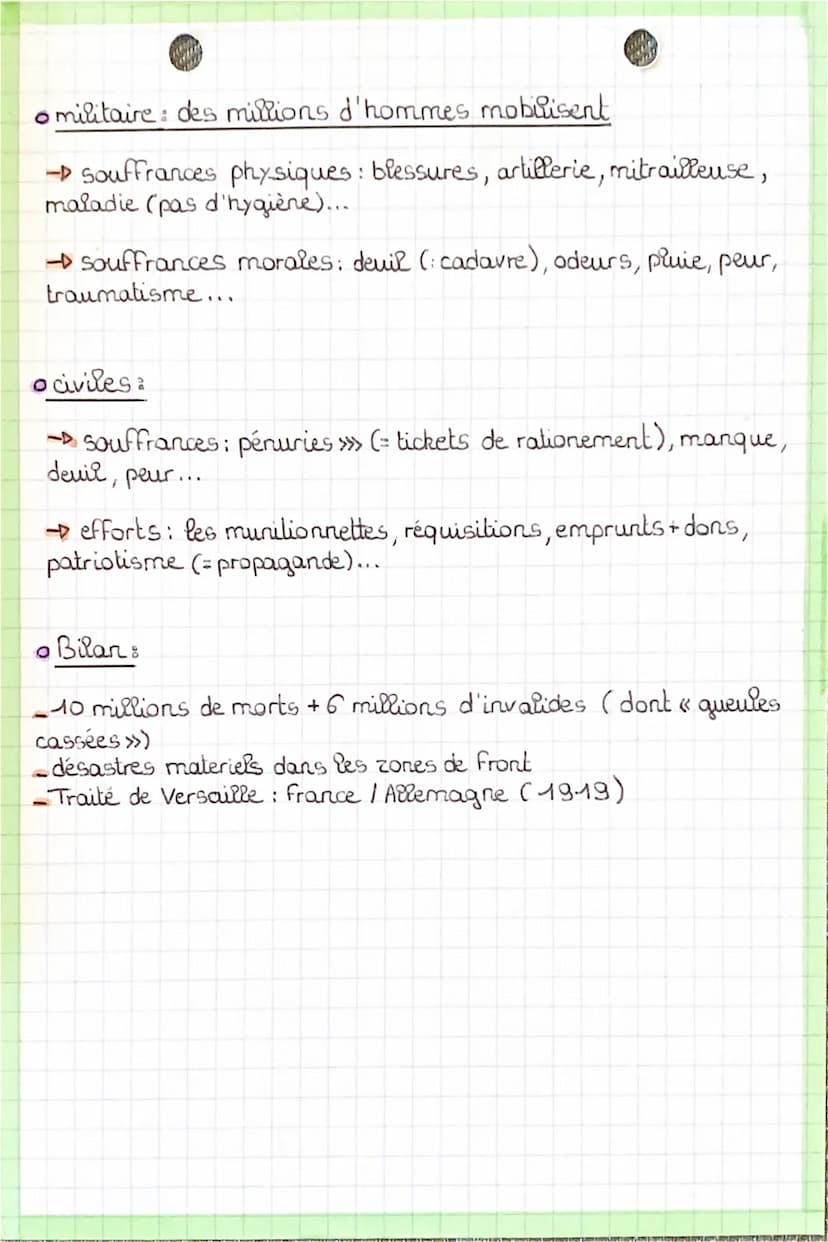 militaire : des millions d'hommes mobilisent
→ souffrances physiques : blessures, artillerie, mitrailleuse,
maladie (pas d'hygiène)...
→ souffrances morales : deuil (: cadavre), odeurs, pluie, peur,
traumatisme...
civiles :
→ souffrances : pénuries >>> (= tickets de rationement), manque,
deuil, peur...
→ efforts : les munitionnettes, réquisitions, emprunts + dons,
patriotisme (= propagande)...
Bilan :
- 10 millions de morts + 6 millions d'invalides (dont « gueules
cassées »)
- désastres materiels dans les zones de front
- Traité de Versaille : France / Allemagne (1919)